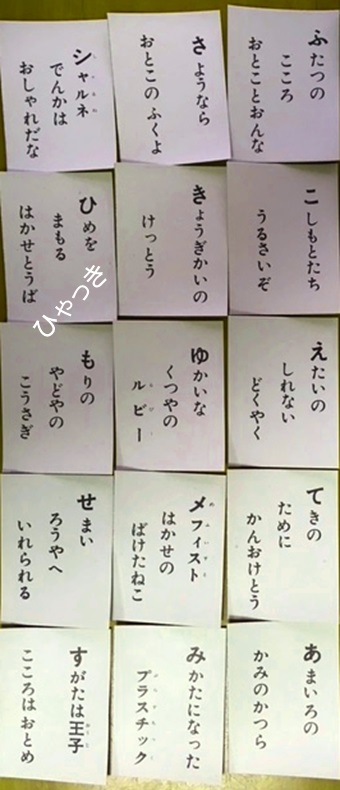 ふたつの
こころ
おとことおんな
さようなら
おとこのふくよ
シャルネ
でんかは
おしゃれだな
こしもとたち
うるさいぞ
きょうぎかいの
けっとう
ひめを
まもる
はかせとうば
ひゃっき
えたいの
しれない
どくやく
ゆかいな
くつやの
ルビー
もりの
やどやの
こうさぎ
てきの
ために
かんおけとう
メフィスト
はかせの
ばけたねこ
せまい
ろうやへ
いれられる
あまいろの
かみのかつら
みかたになった
プラスチック
すがたは王子
こころはおとめ